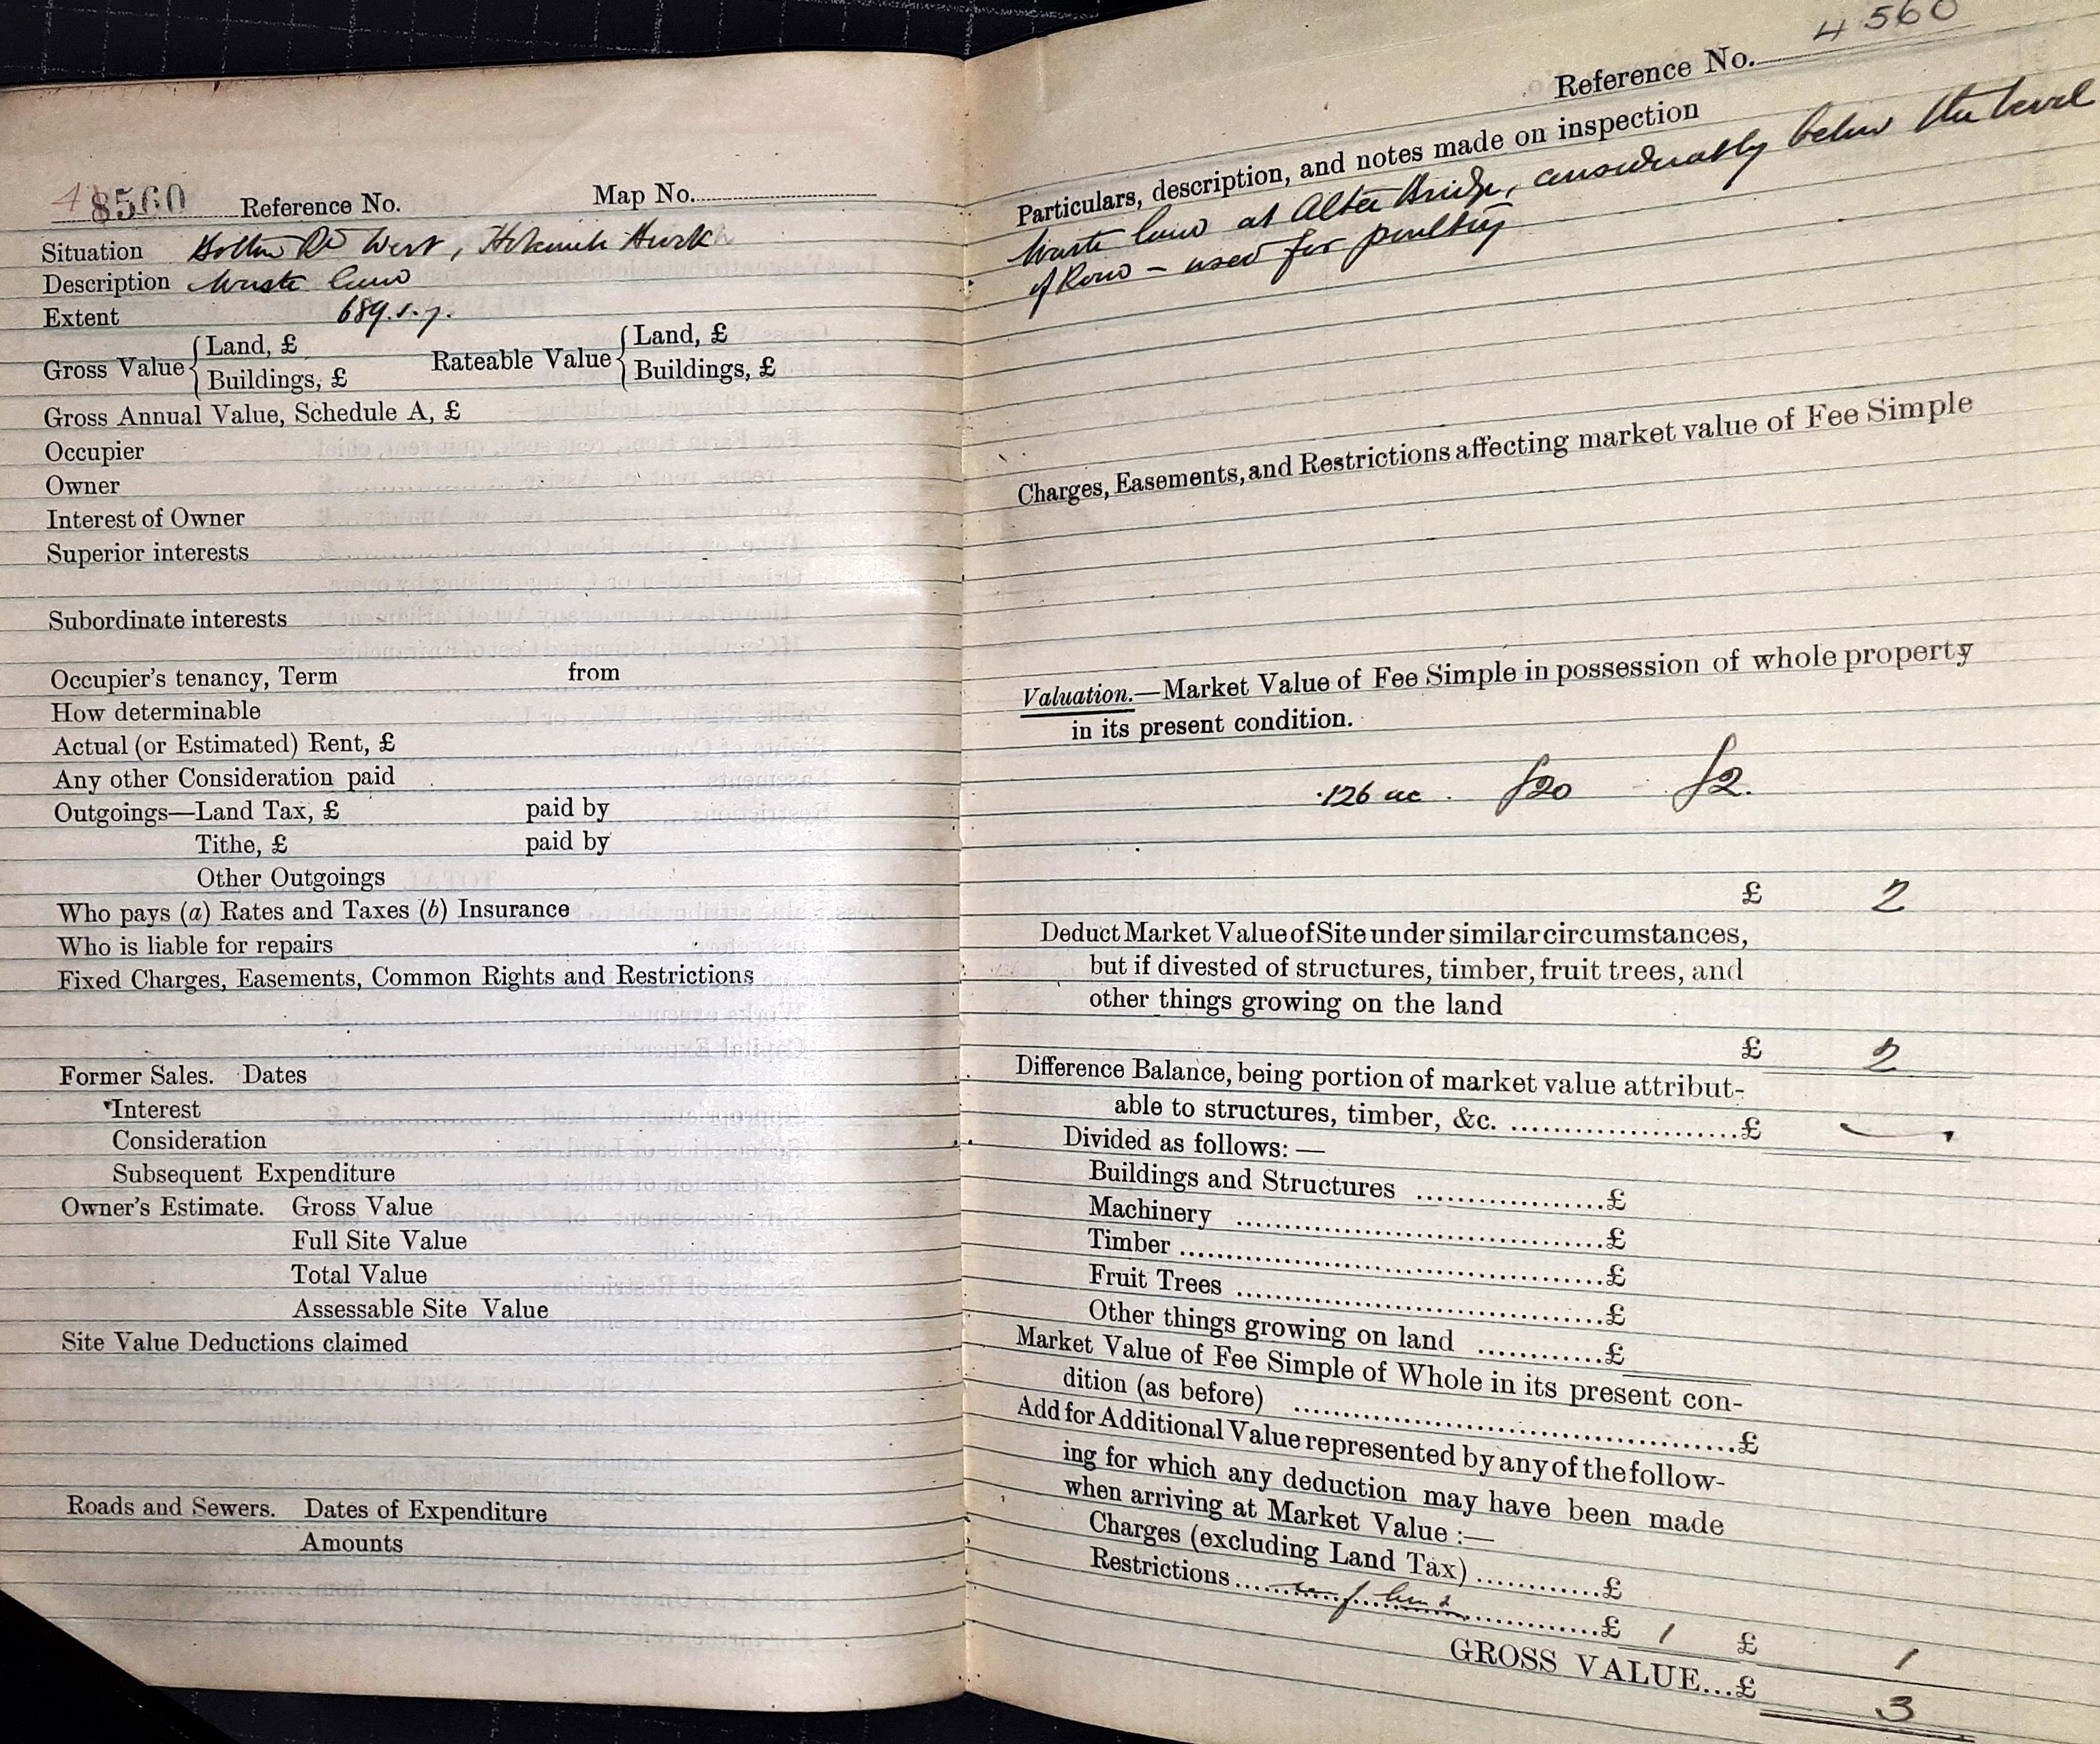 48560 Reference No. Map No.
Situation Rd West,
Description Waste land
Extent 689.s.y.
Gross Value { Land, £ Rateable Value { Land, £
Buildings, £ Buildings, £
Gross Annual Value, Schedule A, £
Occupier
Owner
Interest of Owner
Superior interests
Subordinate interests
Occupier's tenancy, Term from
How determinable
Actual (or Estimated) Rent, £
Any other Consideration paid
Outgoings—Land Tax, £ paid by
Tithe, £ paid by
Other Outgoings
Who pays (a) Rates and Taxes (b) Insurance
Who is liable for repairs
Fixed Charges, Easements, Common Rights and Restrictions
Former Sales. Dates
Interest
Consideration
Subsequent Expenditure
Owner's Estimate. Gross Value
Full Site Value
Total Value
Assessable Site Value
Site Value Deductions claimed
Roads and Sewers. Dates of Expenditure
Amounts
Reference No. 4560
Particulars, description, and notes made on inspection
Waste land at Bridge, considerably below the level
of Road – used for poultry
Charges, Easements, and Restrictions affecting market value of Fee Simple
Valuation.—Market Value of Fee Simple in possession of whole property
in its present condition.
.126 ac. £20 £2.
£ 2
Deduct Market Value of Site under similar circumstances,
but if divested of structures, timber, fruit trees, and
other things growing on the land
£ 2
Difference Balance, being portion of market value attribut-
able to structures, timber, &c. £
Divided as follows:—
Buildings and Structures £
Machinery £
Timber £
Fruit Trees £
Other things growing on land £
Market Value of Fee Simple of Whole in its present con-
dition (as before) £
Add for Additional Value represented by any of the follow-
ing for which any deduction may have been made
when arriving at Market Value :—
Charges (excluding Land Tax) £
Restrictions £ 1 £ 1
GROSS VALUE...£ 3